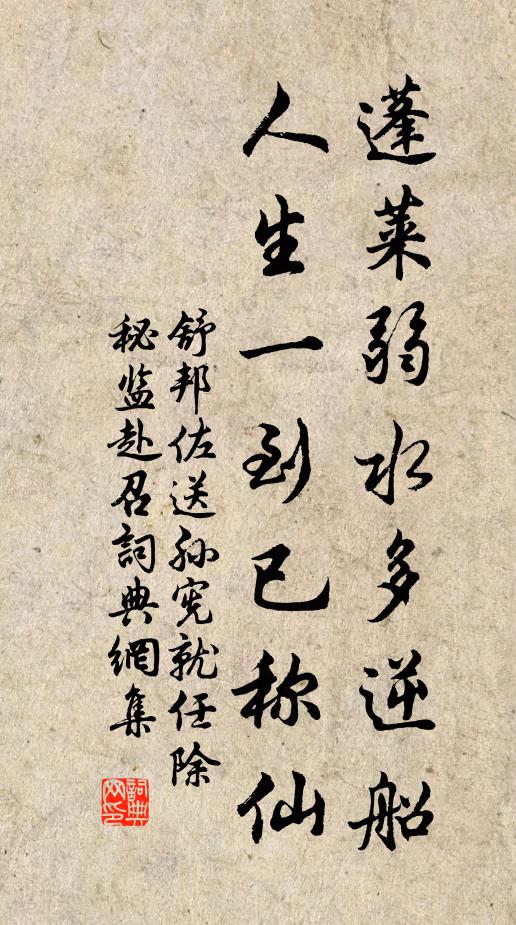 蓬莱弱水多逆船
人生一到已称仙
舒邦佐送孙宪就任除
秘监赴召詞典網集
詞典网印